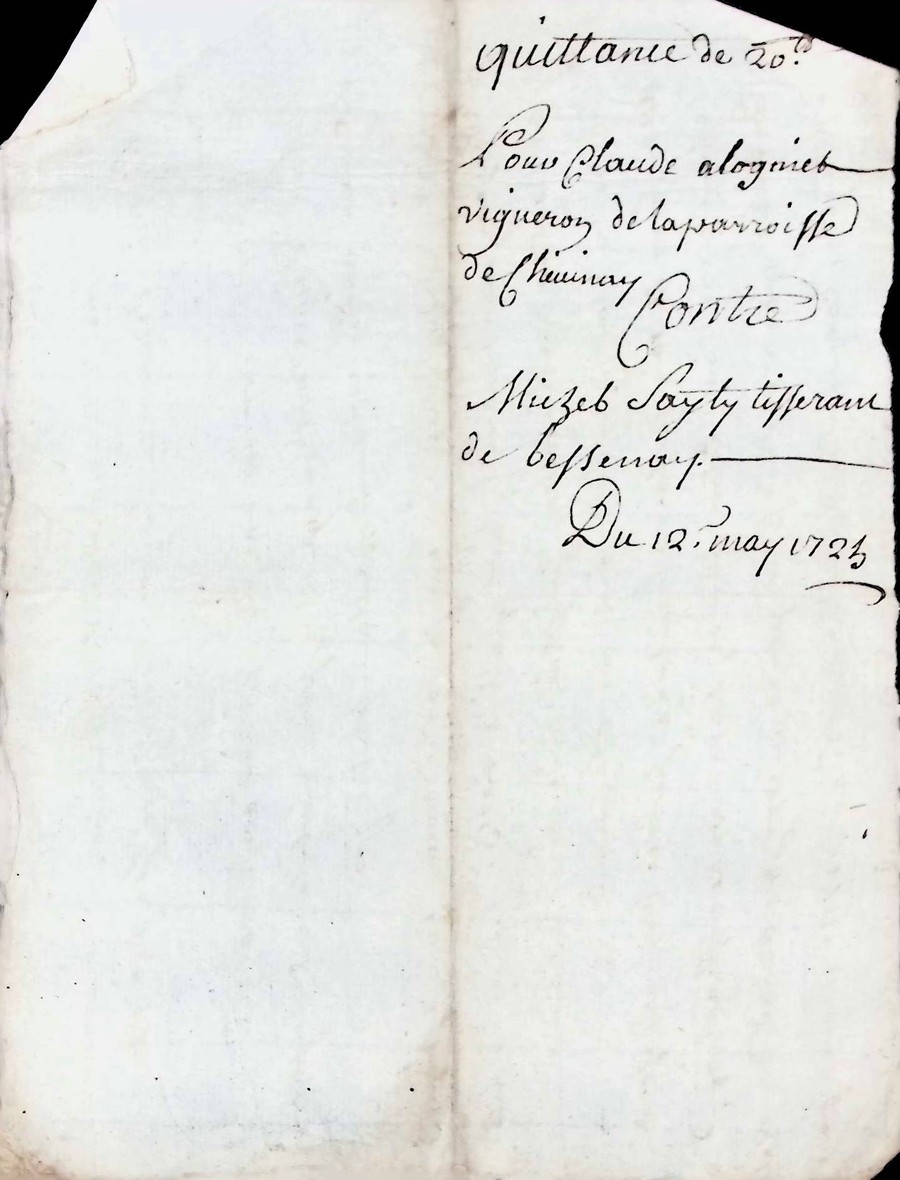 quittance de 20.tt
Pour Claude alogniet
vigneron de laparroisse
de Chevinay
Contre
Michel Sayly tisserant
de bessenay.
Du 12.e may 1725